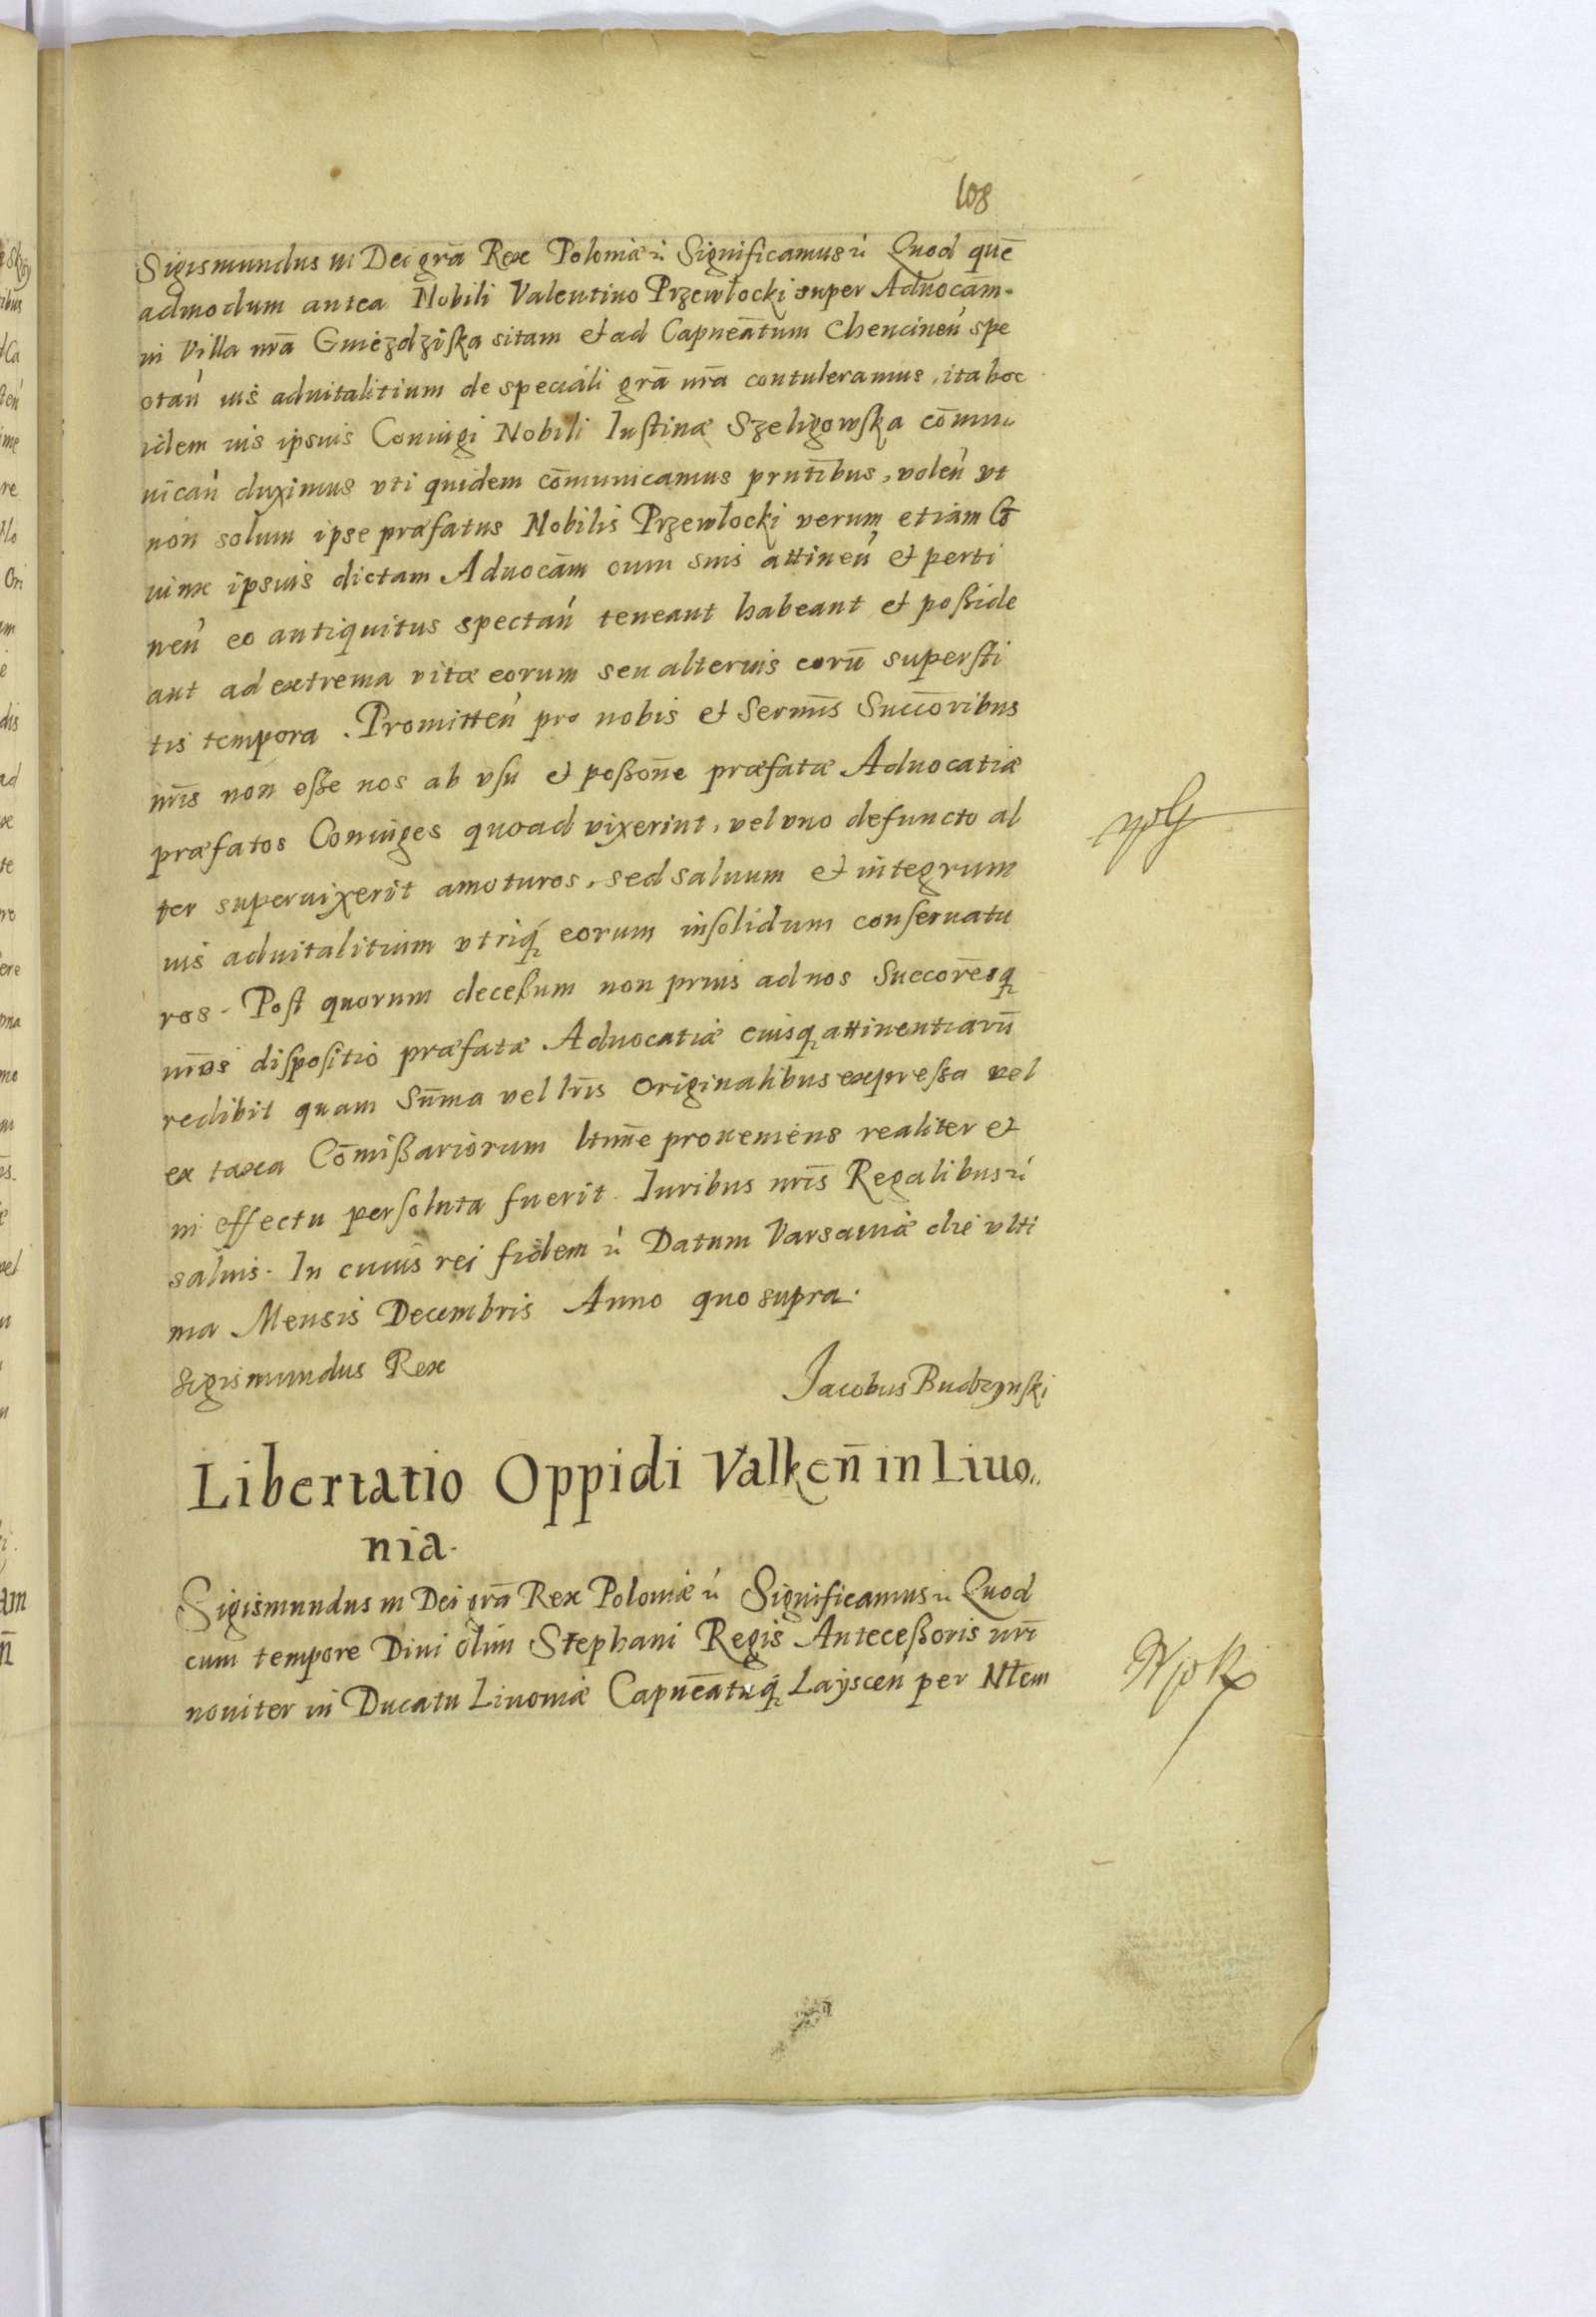 108
Sigismundus III Dei grā Rex Poloniæ ń Significamus ń Quod quē
admodum antea Nobili Valentino Przewłocki super Aduocām
in Villa nrā Gniezdziska sitam et ad Capneātum Chencineń spe
ctań ius aduitalitium de speciali grā nrā contuleramus, ita hoc
idem ius ipsius Coniugi Nobili Iustinæ Szeligowska cōmu
nicań duximus vti quidem cōmunicamus prntībus, voleń vt
non solum ipse præfatus Nobilis Przewłocki verum etiam Cō
iunx ipsius dictam Aduocām cum suis attineń et perti
neń eo antiquitus spectań teneant habeant et poßide
ant ad extrema vitæ eorum seu alterius eorū supersti
tis tempora. Promitteń pro nobis et Sermīs Succōribus
nrīs non eße nos ab vsu et poßōne præfatæ Aduocatiæ
præfatos Coniuges quoad vixerint, vel vno defuncto al
ter superuixerit amoturos, sed saluum et integrum
ius aduitalitium vtriq́ eorum insolidum conseruatu
ros. Post quorum deceßum non prius ad nos Succorēsq
nrōs dispositio præfatæ Aduocatiæ eiusq attinentiarū
redibit quam Sūma vel lrīs originalibus expreßa vel
ex taxa Cōmißariorum ltīme proueniens realiter et
in effectu persoluta fuerit Iuribus nrīs Regalibus ń
saluis. In cuius rei fidem ń Datum Varsauiæ die vlti
ma Mensis Decembris Anno quo supra.
Sigismundus Rex
Jacobus Budzynski
Libertatio Oppidi Valkeñ in Liuo„
nia.
Sigismundus III Dei grā Rex Poloniæ ń Significamus ń Quod
cum tempore Diui olim Stephani Regis Anteceßoris nrī
nouiter in Ducatu Liuoniæ Capneātuq́ Laÿsceń per Ntem